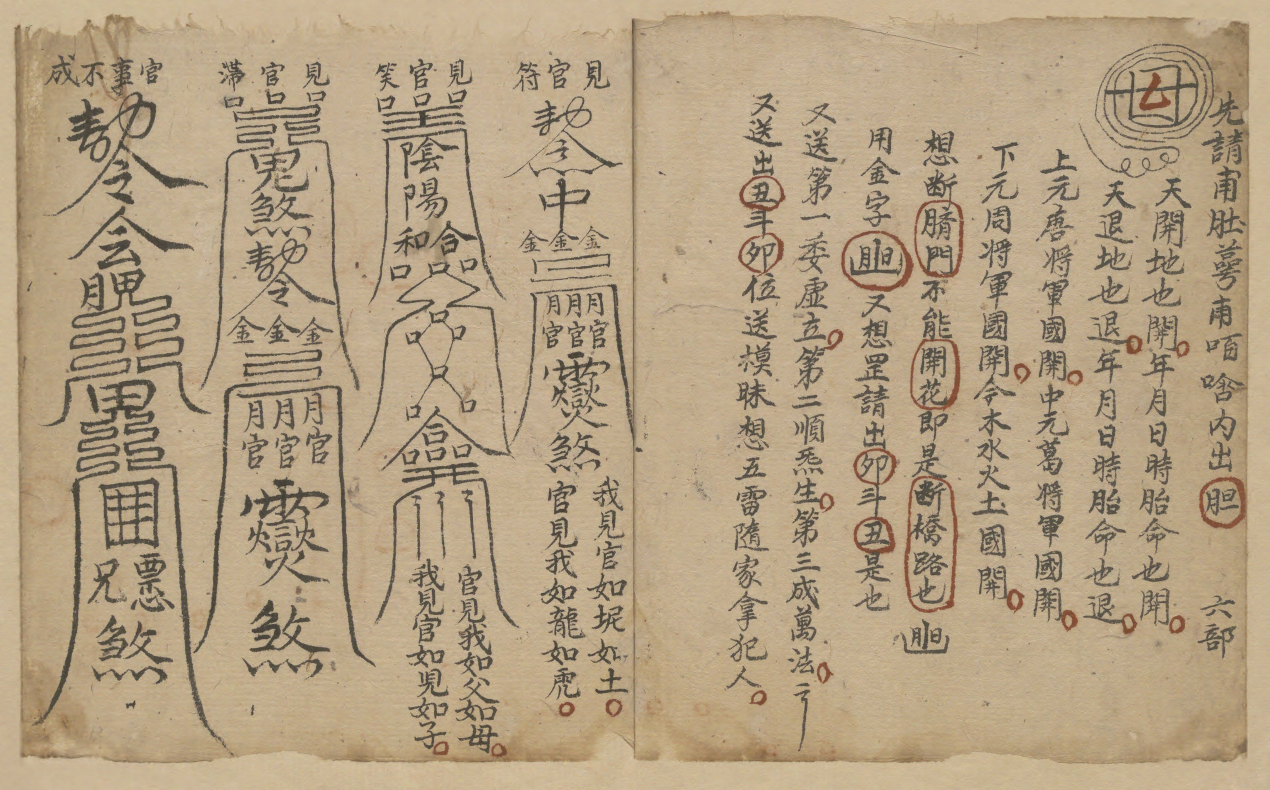 先請甫肚蕚甫咟唅内出胆 六部
乜
天開地也開年月日時胎命也開
天退地也退年月日時胎命也退
上元唐将軍國開中元葛将軍國開
下元周将軍國開令木水火土國開
想断腈門不能開花即是断橋路也
用金字 又想罡請出卯斗丑是也
又送第一委虚立第二順炁生第三成萬法
又送出丑斗卯位送模昧想五雷隨家拿犯人
見官符
勅令
中
金金金
月月月
官官官
煞
我見官如坭如土
官見我如龍如虎
見官笑
陰陽
和合
官見我如父如母
我見官如児如子
見官滯
鬼煞
勅令
金金金
月月月
官官官
煞
官事不成
勅令
煞